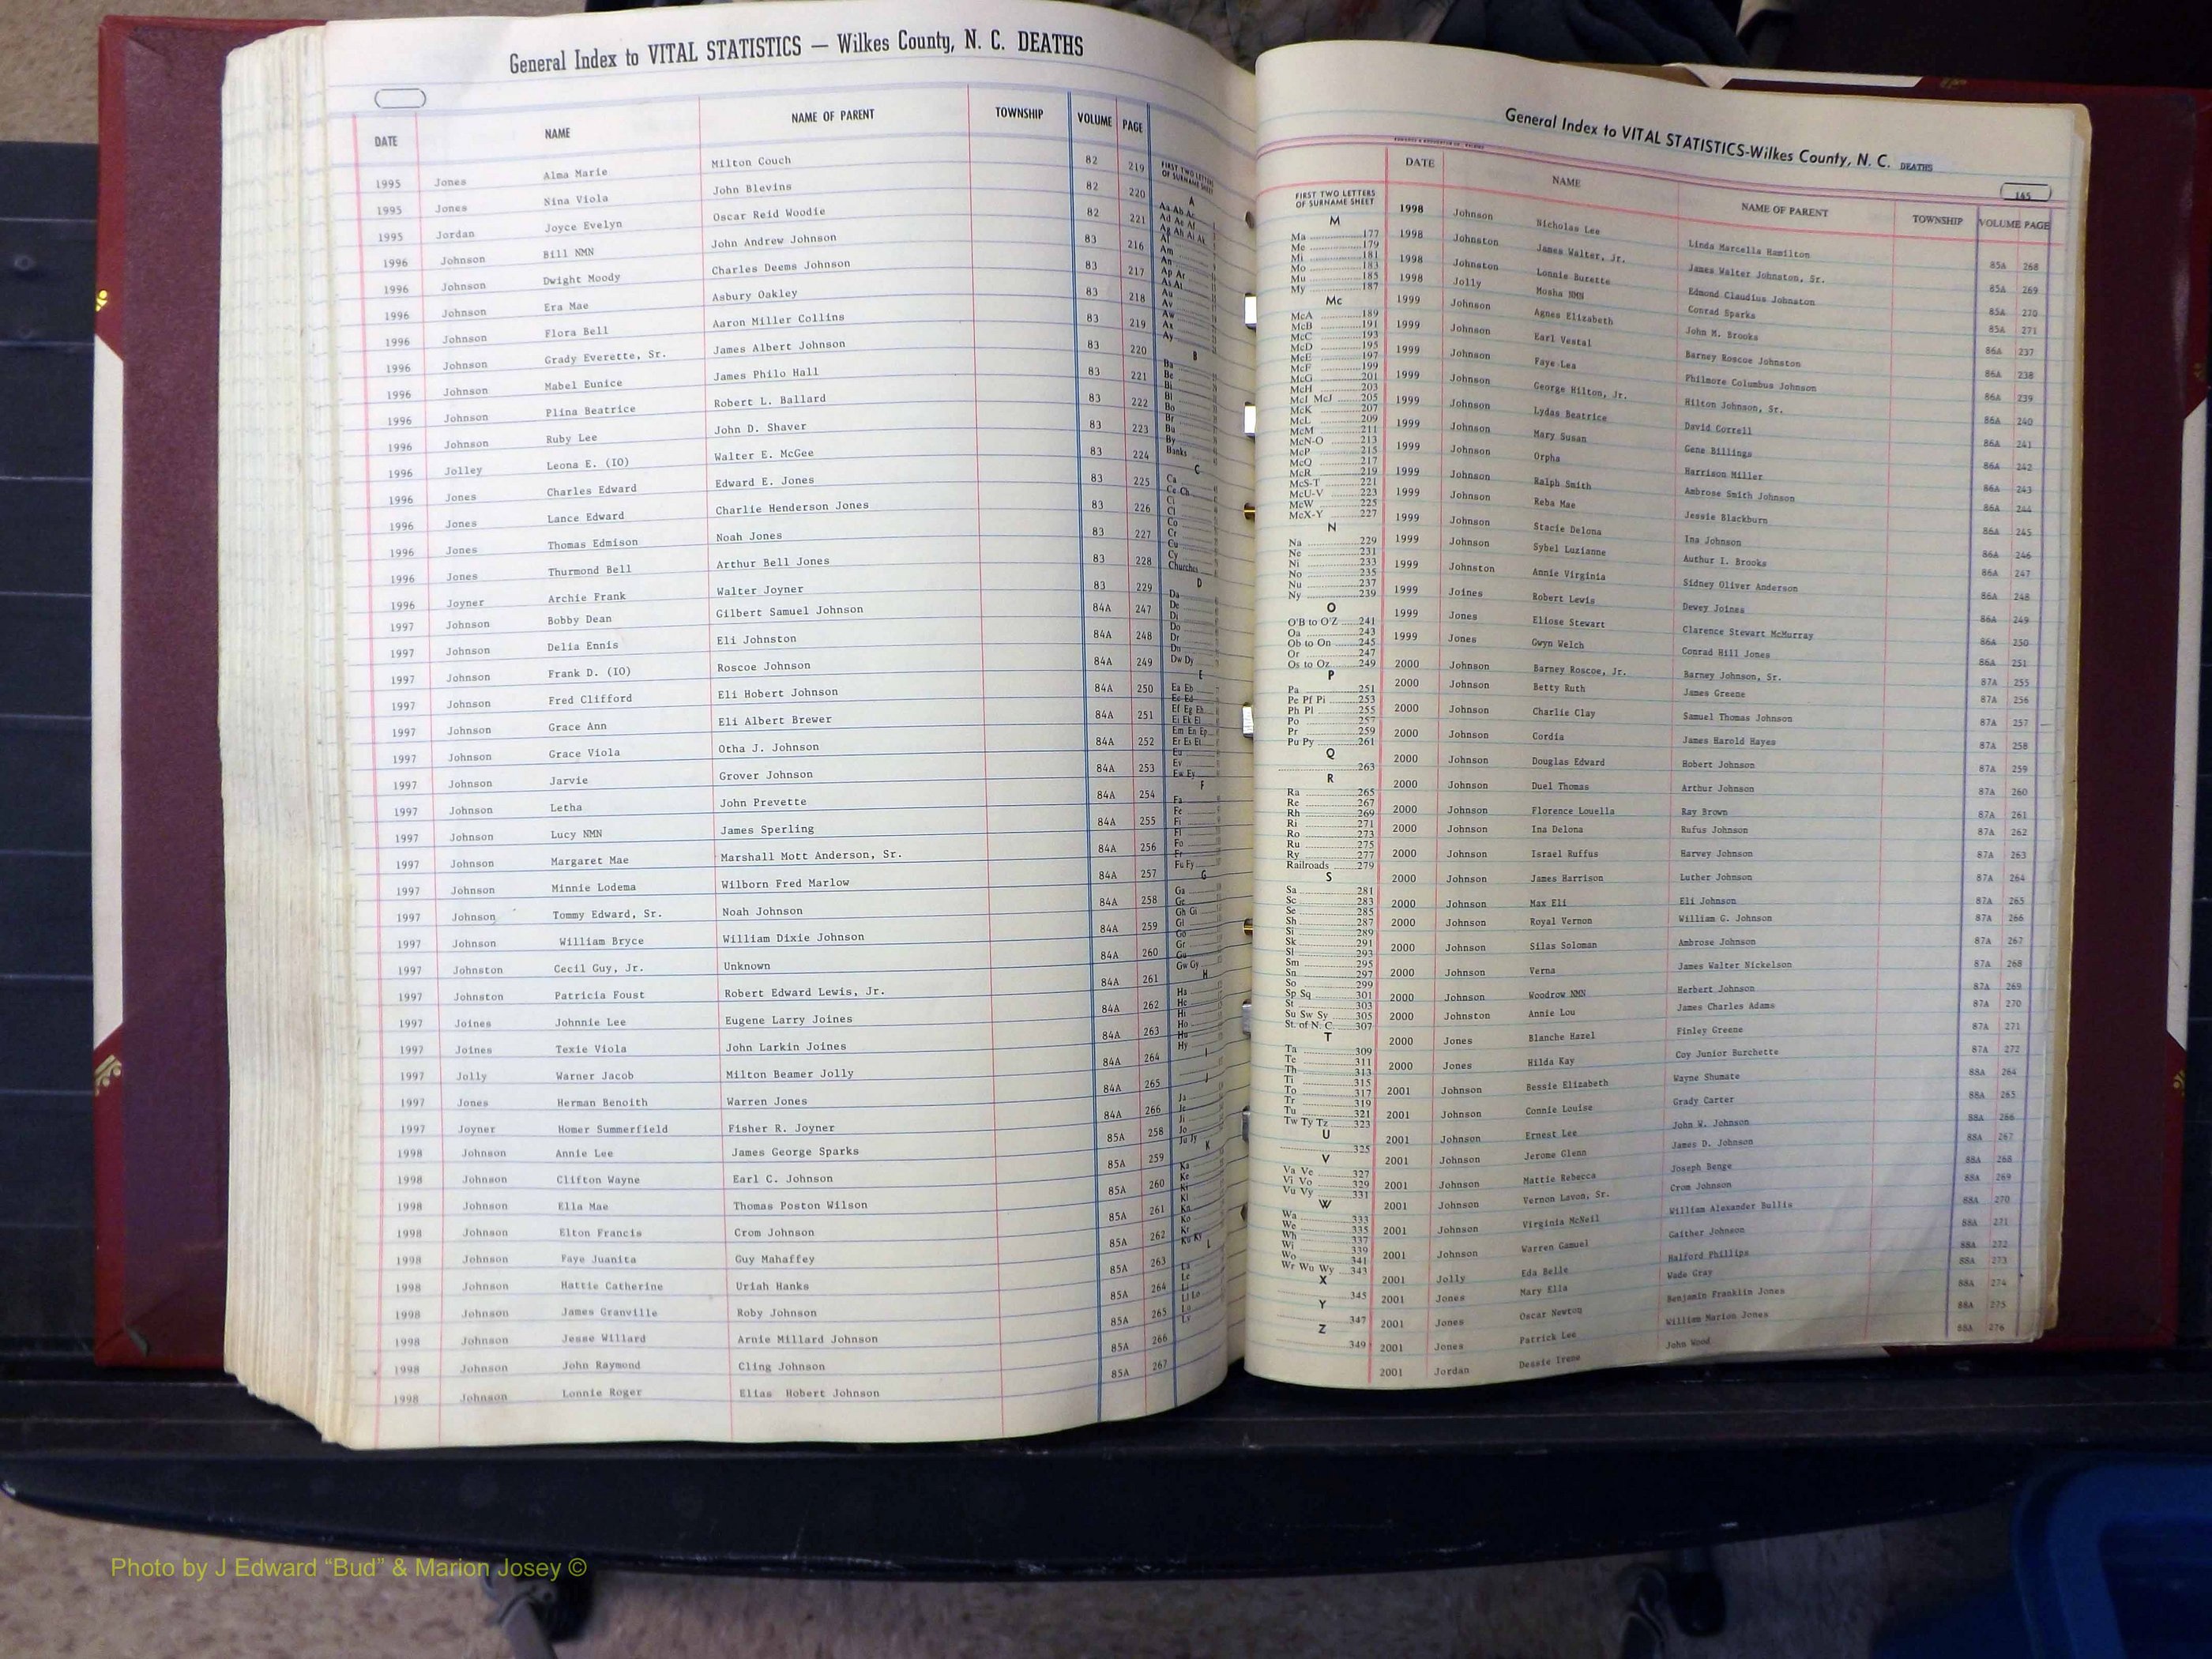 General Index to VITAL STATISTICS — Wilkes County, N. C. DEATHS
DATE NAME NAME OF PARENT TOWNSHIP VOLUME PAGE
1995 Jones Alma Marie Milton Couch 82 219
1995 Jones Nina Viola John Blevins 82 220
1995 Jordan Joyce Evelyn Oscar Reid Woodie 82 221
1996 Johnson Bill NMN John Andrew Johnson 83 216
1996 Johnson Dwight Moody Charles Deems Johnson 83 217
1996 Johnson Era Mae Asbury Oakley 83 218
1996 Johnson Flora Bell Aaron Miller Collins 83 219
1996 Johnson Grady Everette, Sr. James Albert Johnson 83 220
1996 Johnson Mabel Eunice James Philo Hall 83 221
1996 Johnson Plina Beatrice Robert L. Ballard 83 222
1996 Johnson Ruby Lee John D. Shaver 83 223
1996 Jolley Leona E. (IO) Walter E. McGee 83 224
1996 Jones Charles Edward Edward E. Jones 83 225
1996 Jones Lance Edward Charlie Henderson Jones 83 226
1996 Jones Thomas Edmison Noah Jones 83 227
1996 Jones Thurmond Bell Arthur Bell Jones 83 228
1996 Joyner Archie Frank Walter Joyner 83 229
1997 Johnson Bobby Dean Gilbert Samuel Johnson 84A 247
1997 Johnson Delia Ennis Eli Johnston 84A 248
1997 Johnson Frank D. (IO) Roscoe Johnson 84A 249
1997 Johnson Fred Clifford Eli Hobert Johnson 84A 250
1997 Johnson Grace Ann Eli Albert Brewer 84A 251
1997 Johnson Grace Viola Otha J. Johnson 84A 252
1997 Johnson Jarvie Grover Johnson 84A 253
1997 Johnson Letha John Prevette 84A 254
1997 Johnson Lucy NMN James Sperling 84A 255
1997 Johnson Margaret Mae Marshall Mott Anderson, Sr. 84A 256
1997 Johnson Minnie Lodema Wilborn Fred Marlow 84A 257
1997 Johnson Tommy Edward, Sr. Noah Johnson 84A 258
1997 Johnson William Bryce William Dixie Johnson 84A 259
1997 Johnston Cecil Guy, Jr. Unknown 84A 260
1997 Johnston Patricia Foust Robert Edward Lewis, Jr. 84A 261
1997 Joines Johnnie Lee Eugene Larry Joines 84A 262
1997 Joines Texie Viola John Larkin Joines 84A 263
1997 Jolly Warner Jacob Milton Beamer Jolly 84A 264
1997 Jones Herman Benoith Warren Jones 84A 265
1997 Joyner Homer Summerfield Fisher R. Joyner 84A 266
1998 Johnson Annie Lee James George Sparks 85A 258
1998 Johnson Clifton Wayne Earl C. Johnson 85A 259
1998 Johnson Ella Mae Thomas Poston Wilson 85A 260
1998 Johnson Elton Francis Crom Johnson 85A 261
1998 Johnson Faye Juanita Guy Mahaffey 85A 262
1998 Johnson Hattie Catherine Uriah Hanks 85A 263
1998 Johnson James Granville Roby Johnson 85A 264
1998 Johnson Jesse Willard Arnie Millard Johnson 85A 265
1998 Johnson John Raymond Cling Johnson 85A 266
1998 Johnson Lonnie Roger Elias Hobert Johnson 85A 267
FIRST TWO LETTERS
OF SURNAME SHEET
A
Aa Ab Ac
Ad Ae Af
Ag Ah Ai Ak
Al
Am
An
Ap Ar
As At
Au
Av
Aw
Ax
Ay
B
Ba
Be
Bi
Bl
Bo
Br
Bu
By
Banks
C
Ca
Ce Ch
Ci
Cl
Co
Cr
Cu
Cy
Churches
D
Da
De
Di
Do
Dr
Du
Dw Dy
E
Ea Eb
Ec Ed
Ef Eg Eh
Ei Ek El
Em En Ep
Er Es Et
Eu
Ev
Ew Ey
F
Fa
Fe
Fi
Fl
Fo
Fr
Fu Fy
G
Ga
Ge
Gh Gi
Gl
Go
Gr
Gu
Gw Gy
H
Ha
He
Hi
Ho
Hu
Hy
I
J
Ja
Je
Ji
Jo
Ju Jy
K
Ka
Ke
Ki
Kl
Kn
Ko
Kr
Ku Ky
L
La
Le
Li
Ll Lo
Lu
Ly
General Index to VITAL STATISTICS-Wilkes County, N. C. DEATHS
165
FIRST TWO LETTERS
OF SURNAME SHEET
M
Ma 177
Me 179
Mi 181
Mo 183
Mu 185
My 187
Mc
McA 189
McB 191
McC 193
McD 195
McE 197
McF 199
McG 201
McH 203
McI McJ 205
McK 207
McL 209
McM 211
McN-O 213
McP 215
McQ 217
McR 219
McS-T 221
McU-V 223
McW 225
McX-Y 227
N
Na 229
Ne 231
Ni 233
No 235
Nu 237
Ny 239
O
O'B to O'Z 241
Oa 243
Ob to On 245
Or 247
Os to Oz 249
P
Pa 251
Pe Pf Pi 253
Ph Pl 255
Po 257
Pr 259
Pu Py 261
Q
263
R
Ra 265
Re 267
Rh 269
Ri 271
Ro 273
Ru 275
Ry 277
Railroads 279
S
Sa 281
Sc 283
Se 285
Sh 287
Si 289
Sk 291
Sl 293
Sm 295
Sn 297
So 299
Sp Sq 301
St 303
Su Sw Sy 305
St. of N. C. 307
T
Ta 309
Te 311
Th 313
Ti 315
To 317
Tr 319
Tu 321
Tw Ty Tz 323
U
325
V
Va Ve 327
Vi Vo 329
Vu Vy 331
W
Wa 333
We 335
Wh 337
Wi 339
Wo 341
Wr Wu Wy 343
X
345
Y
347
Z
349
DATE NAME NAME OF PARENT TOWNSHIP VOLUME PAGE
1998 Johnson Nicholas Lee Linda Marcella Hamilton 85A 268
1998 Johnston James Walter, Jr. James Walter Johnston, Sr. 85A 269
1998 Johnston Lonnie Burette Edmond Claudius Johnston 85A 270
1998 Jolly Mosha NMN Conrad Sparks 85A 271
1999 Johnson Agnes Elizabeth John M. Brooks 86A 237
1999 Johnson Earl Vestal Barney Roscoe Johnston 86A 238
1999 Johnson Faye Lea Philmore Columbus Johnson 86A 239
1999 Johnson George Hilton, Jr. Hilton Johnson, Sr. 86A 240
1999 Johnson Lydas Beatrice David Correll 86A 241
1999 Johnson Mary Susan Gene Billings 86A 242
1999 Johnson Orpha Harrison Miller 86A 243
1999 Johnson Ralph Smith Ambrose Smith Johnson 86A 244
1999 Johnson Reba Mae Jessie Blackburn 86A 245
1999 Johnson Stacie Delona Ina Johnson 86A 246
1999 Johnson Sybel Luzianne Authur I. Brooks 86A 247
1999 Johnston Annie Virginia Sidney Oliver Anderson 86A 248
1999 Joines Robert Lewis Dewey Joines 86A 249
1999 Jones Eliose Stewart Clarence Stewart McMurray 86A 250
1999 Jones Gwyn Welch Conrad Hill Jones 86A 251
2000 Johnson Barney Roscoe, Jr. Barney Johnson, Sr. 87A 255
2000 Johnson Betty Ruth James Greene 87A 256
2000 Johnson Charlie Clay Samuel Thomas Johnson 87A 257
2000 Johnson Cordia James Harold Hayes 87A 258
2000 Johnson Douglas Edward Hobert Johnson 87A 259
2000 Johnson Duel Thomas Arthur Johnson 87A 260
2000 Johnson Florence Louella Ray Brown 87A 261
2000 Johnson Ina Delona Rufus Johnson 87A 262
2000 Johnson Israel Ruffus Harvey Johnson 87A 263
2000 Johnson James Harrison Luther Johnson 87A 264
2000 Johnson Max Eli Eli Johnson 87A 265
2000 Johnson Royal Vernon William G. Johnson 87A 266
2000 Johnson Silas Soloman Ambrose Johnson 87A 267
2000 Johnson Verna James Walter Nickelson 87A 268
2000 Johnson Woodrow NMN Herbert Johnson 87A 269
2000 Johnston Annie Lou James Charles Adams 87A 270
2000 Jones Blanche Hazel Finley Greene 87A 271
2000 Jones Hilda Kay Coy Junior Burchette 87A 272
2001 Johnson Bessie Elizabeth Wayne Shumate 88A 264
2001 Johnson Connie Louise Grady Carter 88A 265
2001 Johnson Ernest Lee John W. Johnson 88A 266
2001 Johnson Jerome Glenn James D. Johnson 88A 267
2001 Johnson Mattie Rebecca Joseph Benge 88A 268
2001 Johnson Vernon Lavon, Sr. Crom Johnson 88A 269
2001 Johnson Virginia McNeil William Alexander Bullis 88A 270
2001 Johnson Warren Gamuel Gaither Johnson 88A 271
2001 Jolly Eda Belle Halford Phillips 88A 272
2001 Jones Mary Ella Wade Gray 88A 273
2001 Jones Oscar Newton Benjamin Franklin Jones 88A 274
2001 Jones Patrick Lee William Marion Jones 88A 275
2001 Jordan Dessie Irene John Wood 88A 276
Photo by J Edward “Bud” & Marion Josey ©